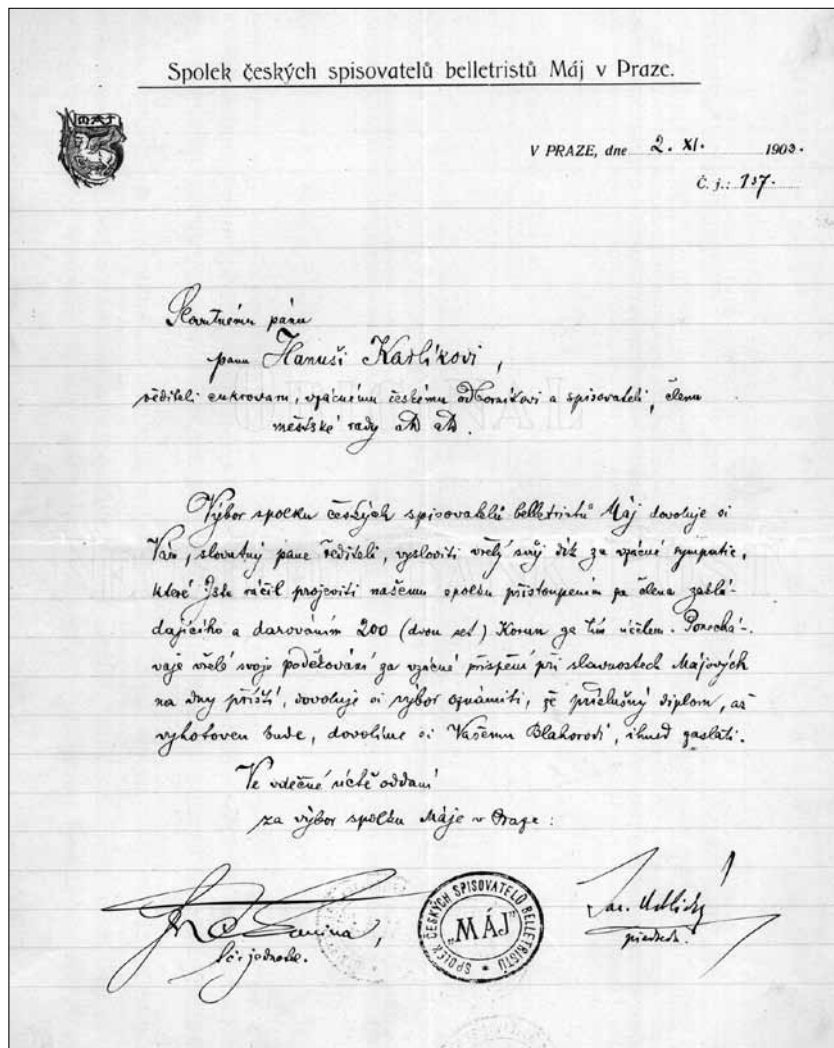 Spolek českých spisovatelů belletristů Máj v Praze.
MÁJ
V PRAZE, dne 2. XI. 1903.
Č. j.: 137.
Slovutnému pánu
panu Hanuši Karlíkovi,
řediteli cukrovaru, vzácnému českému odborníkovi a spisovateli, členu
městské rady atd atd.
Výbor spolku českých spisovatelů belletristů Máj dovoluje si
Vám, slovutný pane řediteli, vysloviti vřelý svůj dík za vzácné sympatie,
které Jste ráčil projeviti našemu spolku přistoupením za člena zaklá-
dajícího a darováním 200 (dvou set) Korun za tím účelem. Ponechá-
vaje vřelé svoje poděkování za vzácné přispění při slavnostech Májových
na dny příští, dovoluje si výbor oznámiti, že příslušný diplom, až
vyhotoven bude, dovolíme si Vašemu Blahorodí, ihned zaslati.
Ve vděčné úctě oddaní
za výbor spolku Máje v Praze:
t. č. jednatel.
SPOLEK ČESKÝCH SPISOVATELŮ BELLETRISTŮ
"MÁJ"
Jar. Vrchlický
předseda.